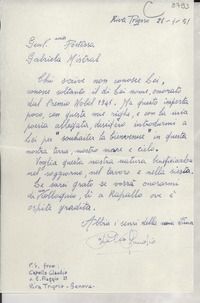 C 0793
Riva Trigoso 28-1-51
Gent.ma Poetessa
Gabriela Mistral
Chi scrive non conosce Lei,
conosce soltanto il di Lei nome, onorato
dal Premio Nobel 1945. Ma questo importa
poco, con queste mie righe, e con la mia
poesia allegata, desidero introdurmi a
Lei per "souhaiter la bienvenue" in questa
nostra terra, nostro mare e cielo.
Voglia questa nostra natura beneficiarla
nel soggiorno, nel lavoro e nella siesta.
Le sarei grato se vorrà onorarmi
di colloquio, di a Rapallo ove è
ospite gradita.
Abbia i sensi della mia stima
P.S. from:
Capello Claudio
v. E. Piaggio
Riva Trigoso - Genova.